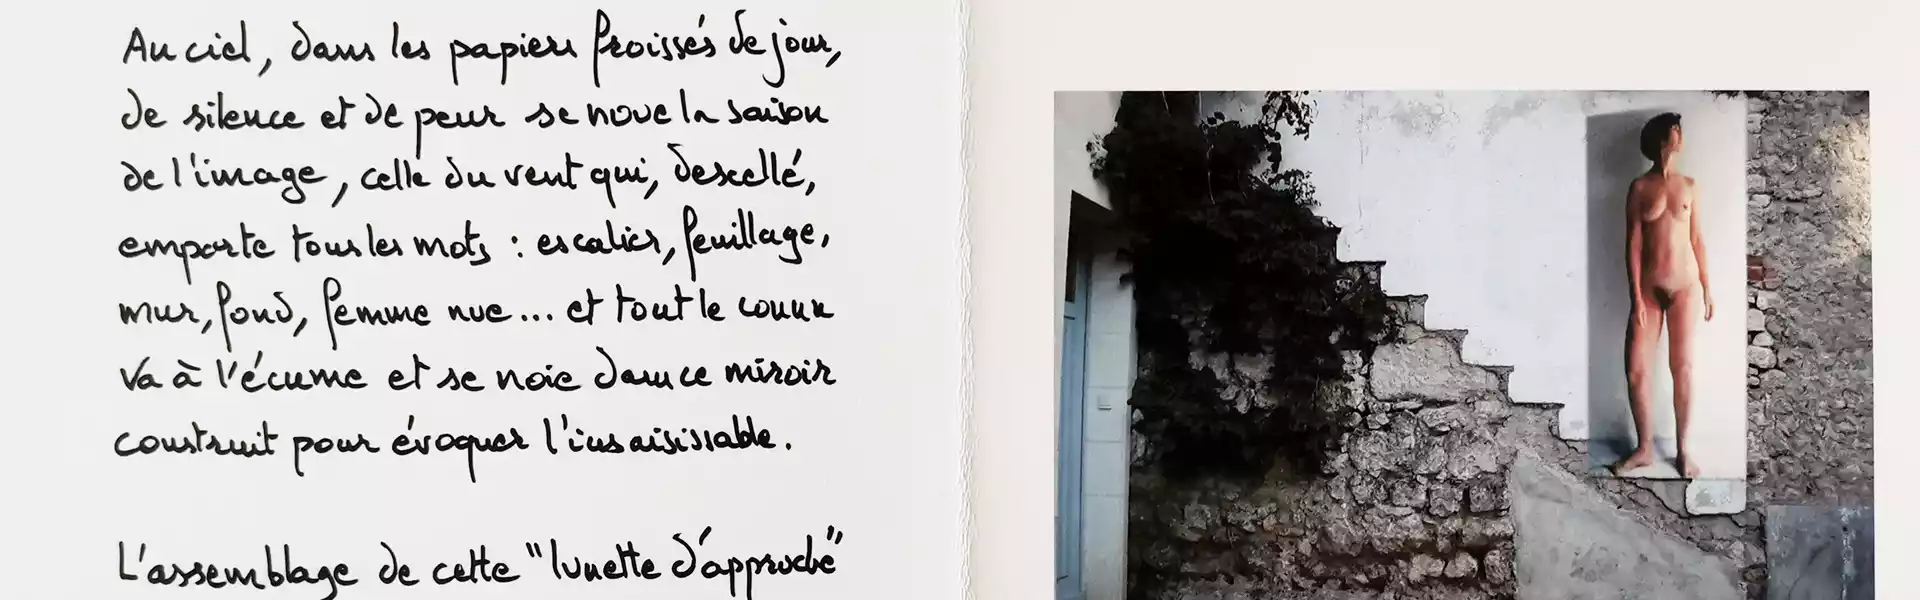 Au ciel, dans les papiers froissés de jour,
de silence et de peur se noue la saison
de l'image, celle du vent qui, descellé,
emporte tous les mots : escalier, feuillage,
mur, fond, femme nue... et tout le connu
va à l'écume et se noie dans ce miroir
construit pour évoquer l'insaisissable.
L'assemblage de cette "lunette d'approche"